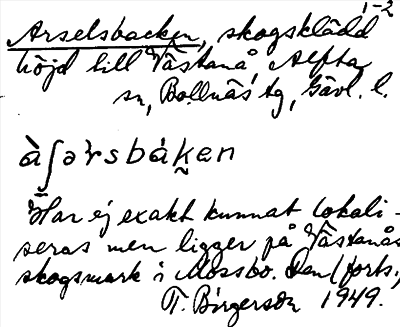 1-2
Arselsbacken, skogsklädd
höjd till Västanå, Alfta
sn, Bollnäs tg, Gävl. l.
àʃəʳsbáken
Har ej exakt kunnat lokali-
seras men ligger på Västanås
skogsmark i Mossbo. Den (forts.)
T. Birgersson 1949.